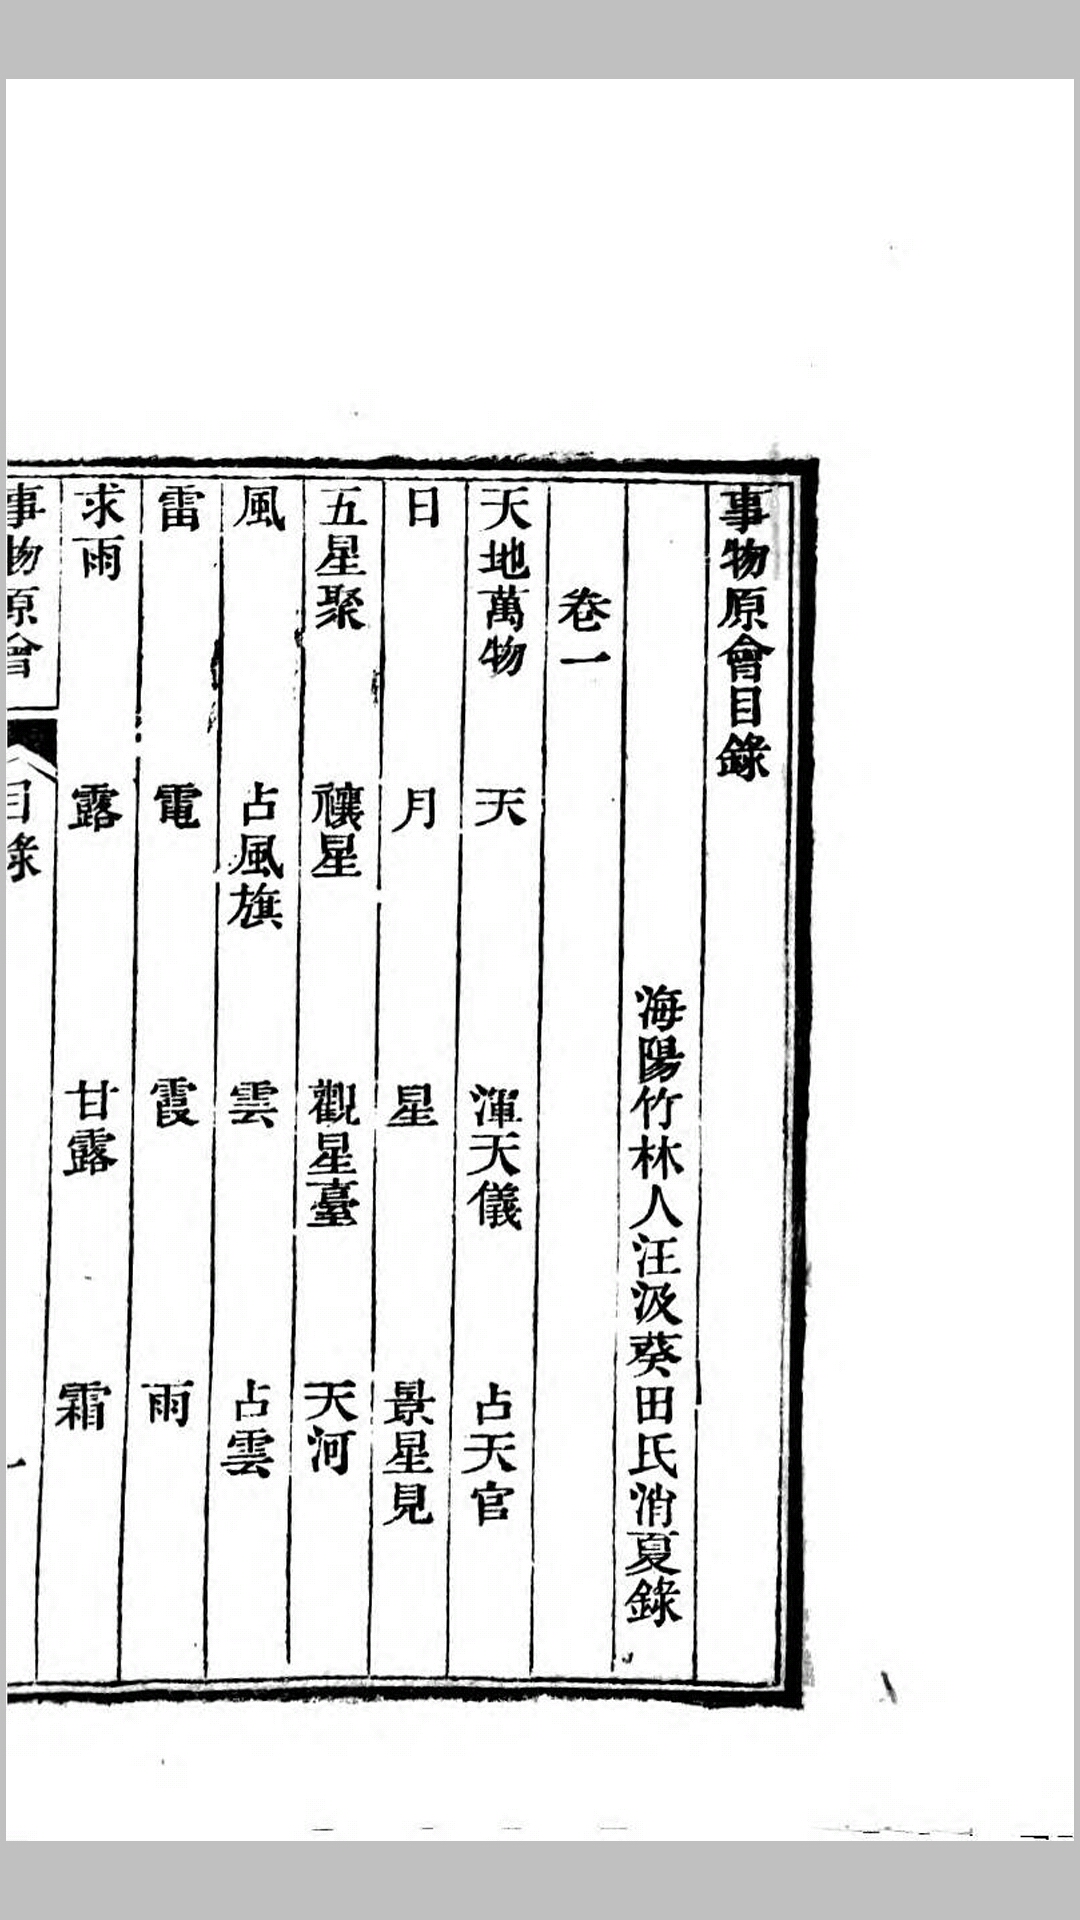 事物原會目錄
海陽竹林人汪汲葵田氏消夏錄
卷一
天地萬物　天　渾天儀　占天官
日　月　星　景星見
五星聚　禳星　觀星臺　天河
風　占風旗　雲　占雲
雷　電　霞　雨
求雨　露　甘露　霜
事物原會　目錄　一